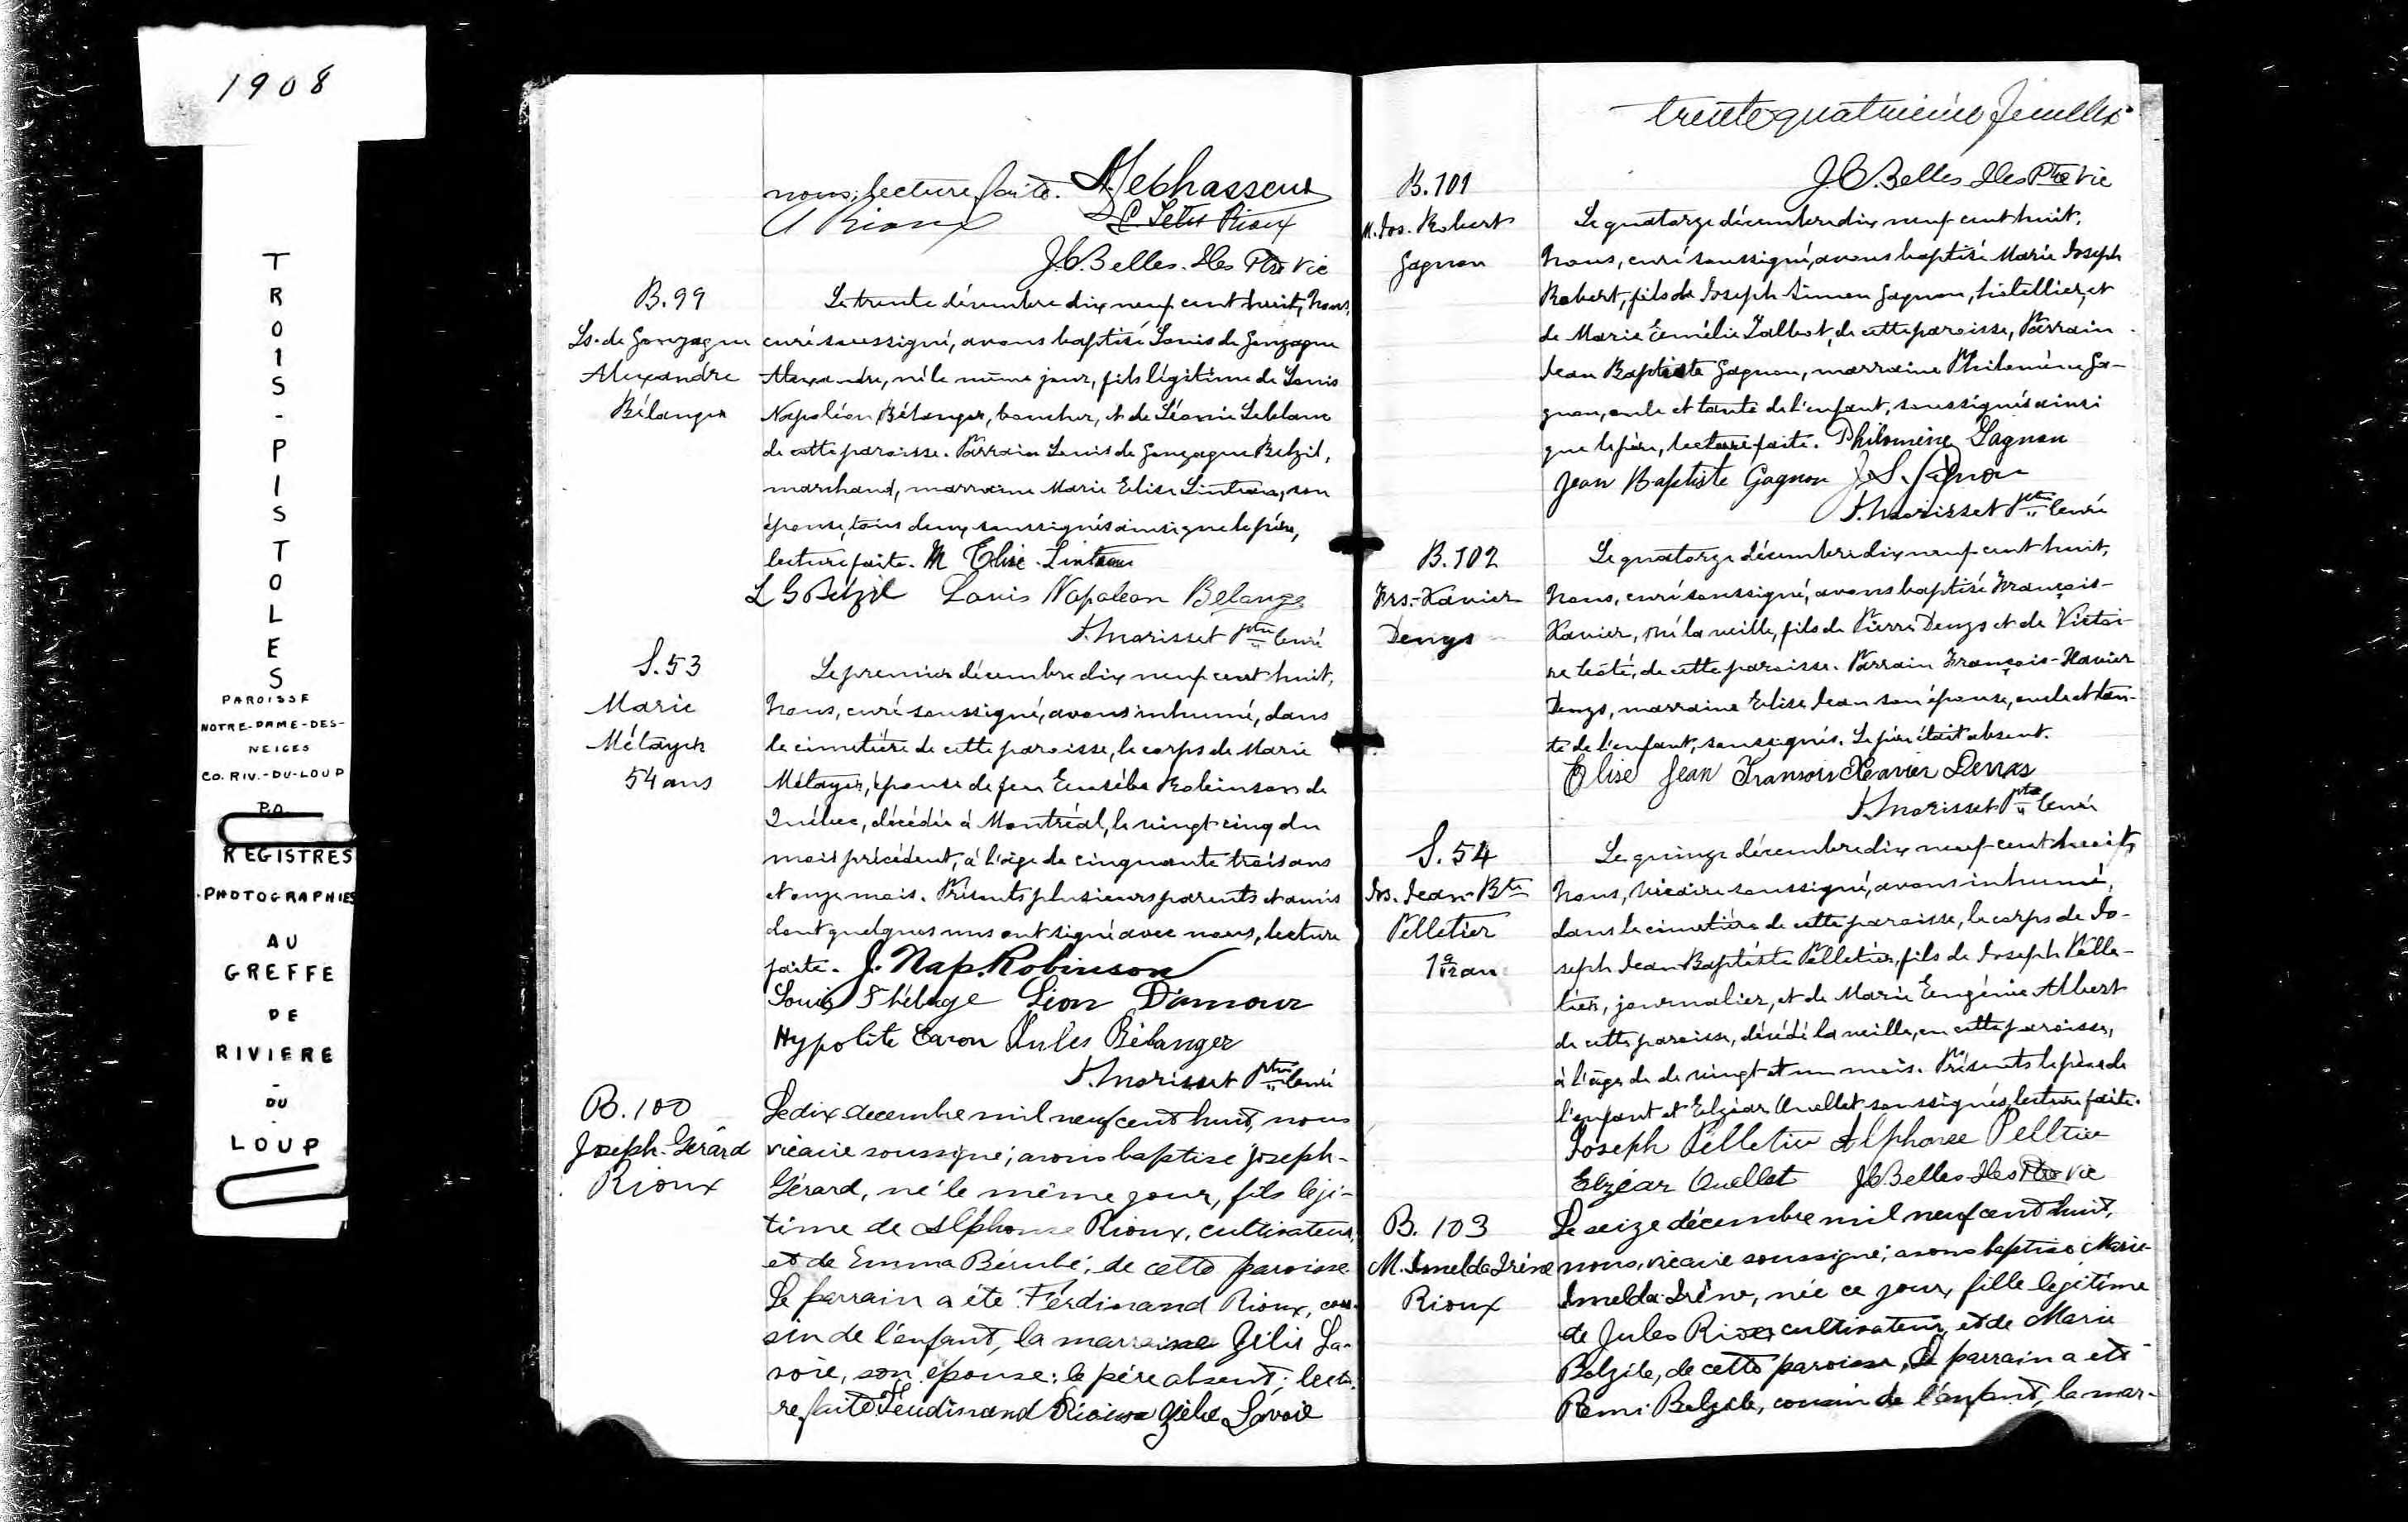 1908
TROIS-PISTOLES
PAROISSE
NOTRE-DAME-DES-
NEIGES
CO. RIV.-DU-LOUP
P.Q.
REGISTRES
PHOTOGRAPHIES
AU
GREFFE
DE
RIVIERE
-
DU
-
LOUP
nous; lecture faite.
Rioux
J.C. Belles-Iles Ptre Vic
B.99
Ls. de Gonzague
Alexandre
Bélanger
Le trente décembre dix neuf cent huit, Nous,
curé soussigné, avons baptisé Louis de Gonzague
Alexandre, né le même jour, fils légitime de Louis
Napoléon Bélanger, boucher, et de Léonie Leblanc
de cette paroisse. Parrain Louis de Gonzague Belzil,
marchand, marraine Marie Elise Linteau, son
épouse, tous deux soussignés ainsi que le père,
lecture faite. M Elise Linteau
L G Belzil Louis Napoleon Bélange
J. Morisset ptre Curé
S.53
Marie
Métayer
54 ans
Le premier décembre dix neuf cent huit,
Nous, curé soussigné, avons inhumé, dans
le cimetière de cette paroisse, le corps de Marie
Métayer, épouse de feu Eusèbe Robinson de
Québec, décédée à Montréal, le vingt cinq du
mois précédent, à l'âge de cinquante trois ans
et onze mois. Présents plusieurs parents et amis
dont quelques uns ont signé avec nous, lecture
faite. J. Nap. Robinson
Louis Théberge Léon D'amour
Hypolite Caron Jules Bélanger
J. Morisset ptre Curé
B.100
Joseph-Gérard
Rioux
Le dix decembre mil neuf cent huit, nous
vicaire soussigné, avons baptise Joseph-
Gérard, né le même jour, fils légi-
time de Alphonse Rioux, cultivateur,
et de Emma Bérubé, de cette paroisse.
Le parrain a été Ferdinand Rioux, cou-
sin de l'enfant, la marraine Zélie La-
voie, son épouse; le père absent; lectu-
re faite Ferdinand Rioux Zélie Lavoie
trente quatrième feuillet
J.C. Belles-Iles Ptre Vic
B.101
M. Jos. Robert
Gagnon
Le quatorze décembre dix neuf cent huit,
Nous, curé soussigné, avons baptisé Marie Joseph
Robert, fils de Joseph Simon Gagnon, hôtellier, et
de Marie Emélie Talbot, de cette paroisse, Parrain
Jean Baptiste Gagnon, marraine Philomène Ga-
gnon, oncle et tante de l'enfant, soussignés ainsi
que le père, lecture faite. Philomène Gagnon
Jean Baptiste Gagnon J. S. Gagnon
J. Morisset ptre Curé
B.102
Frs.-Xavier
Denys
Le quatorze décembre dix neuf cent huit,
Nous, curé soussigné, avons baptisé François-
Xavier, né la veille, fils de Pierre Denys et de Victoi-
re Coté, de cette paroisse. Parrain François-Xavier
Denys, marraine Elise Jean son épouse, oncle et tan-
te de l'enfant, soussignés. Le père était absent.
Elise Jean Fransois Xeavier Denys
J. Morisset ptre Curé
S.54
Jos. Jean-Bte
Pelletier
1 9/12 an
Le quinze décembre dix neuf cent huit,
Nous, vicaire soussigné, avons inhumé,
dans le cimetière de cette paroisse, le corps de Jo-
seph Jean Baptiste Pelletier, fils de Joseph Pelle-
tier, journalier, et de Marie Eugénie Albert
de cette paroisse, décédé la veille, en cette paroisse,
à l'âge de de vingt et un mois. Présents le père de
l'enfant et Elzéar Ouellet soussignés, lecture faite.
Joseph Pelletier Alphonse Pelltier
Elzéar Ouellet J.C. Belles-Iles Ptre Vic
B.103
M. Imelda Irène
Rioux
Le seize décembre mil neuf cent huit,
nous, vicaire soussigné, avons baptisé Marie-
Imelda-Irène, née ce jour, fille legitime
de Jules Rioux cultivateur, et de Marie
Belzile, de cette paroisse, Le parrain a été
Remi Belzile, cousin de l'enfant, la mar-